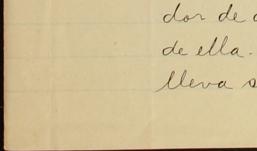 dor de
de ella.
lleva